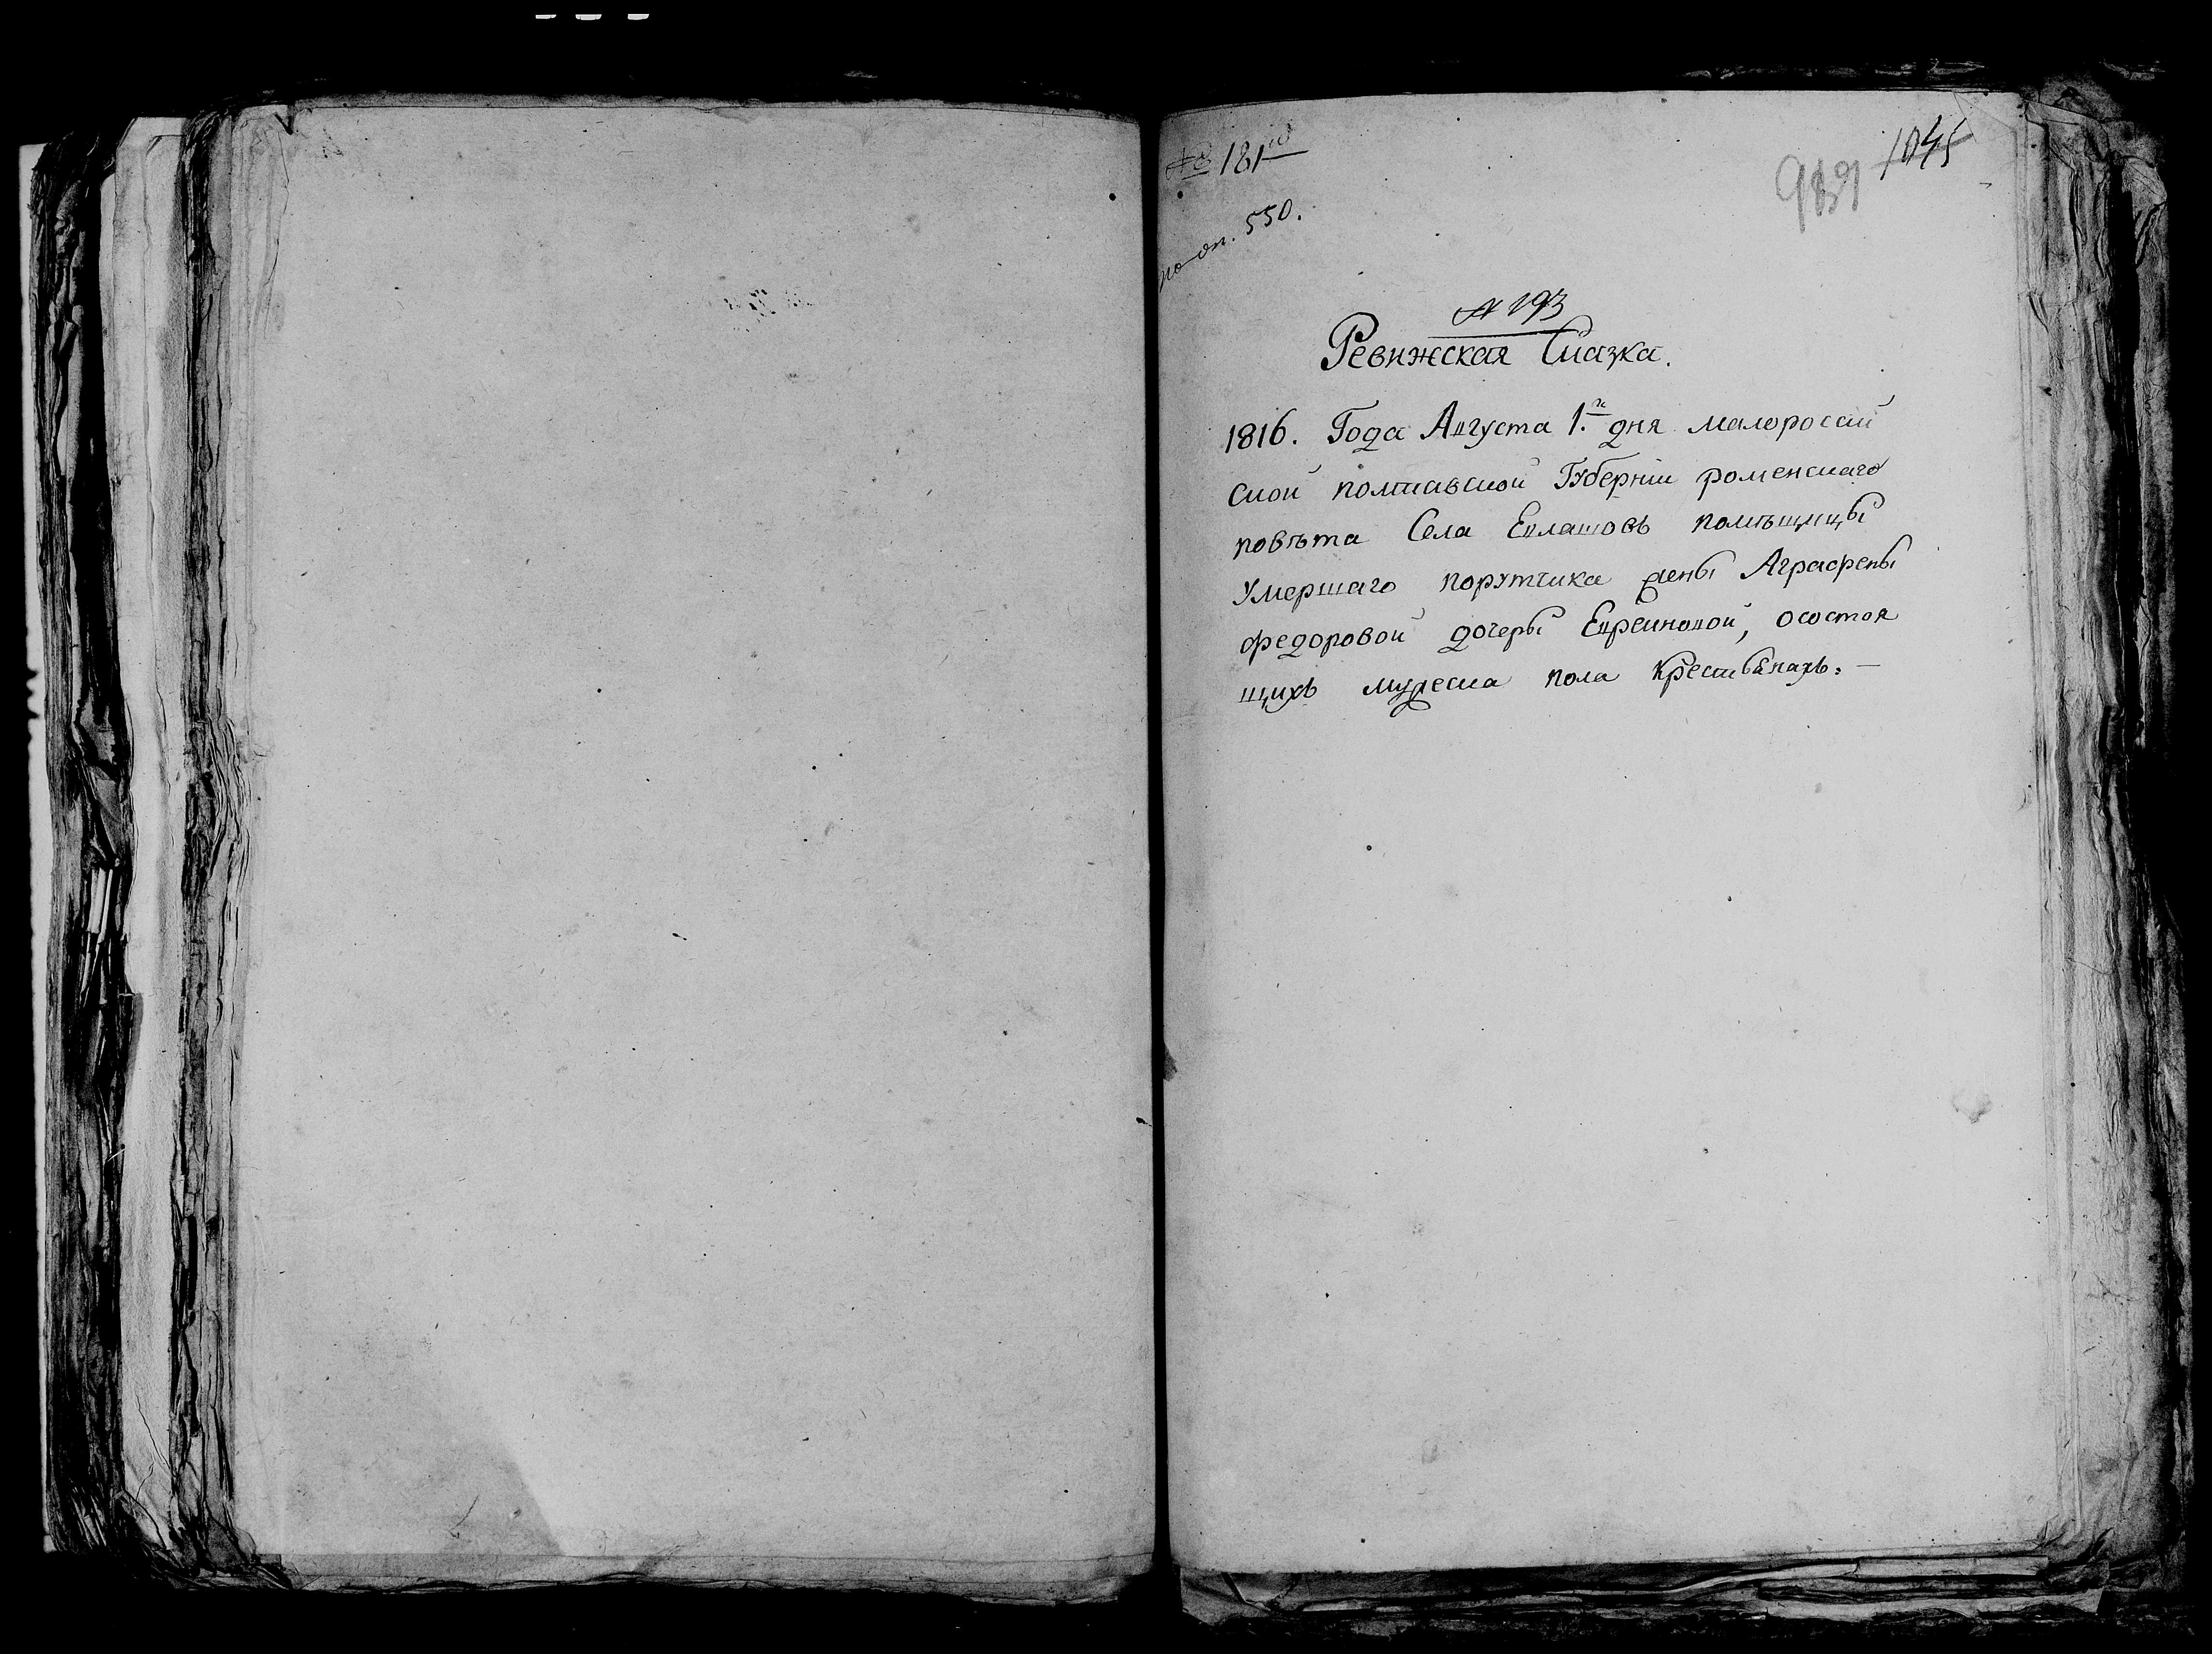 № 181го
по оп. 550.
939 1045
№ 193
Ревижская Сказка.
1816. Года Августа 1.го дня малоросий
ской полтавской Губернии роменскаго
повѣта Села Евлашовъ помѣщицы
умершаго порутчика жены Аграфены
федоровой дочеры Евреиновой, осостоя
щихъ мужеска пола крестьянахъ: —